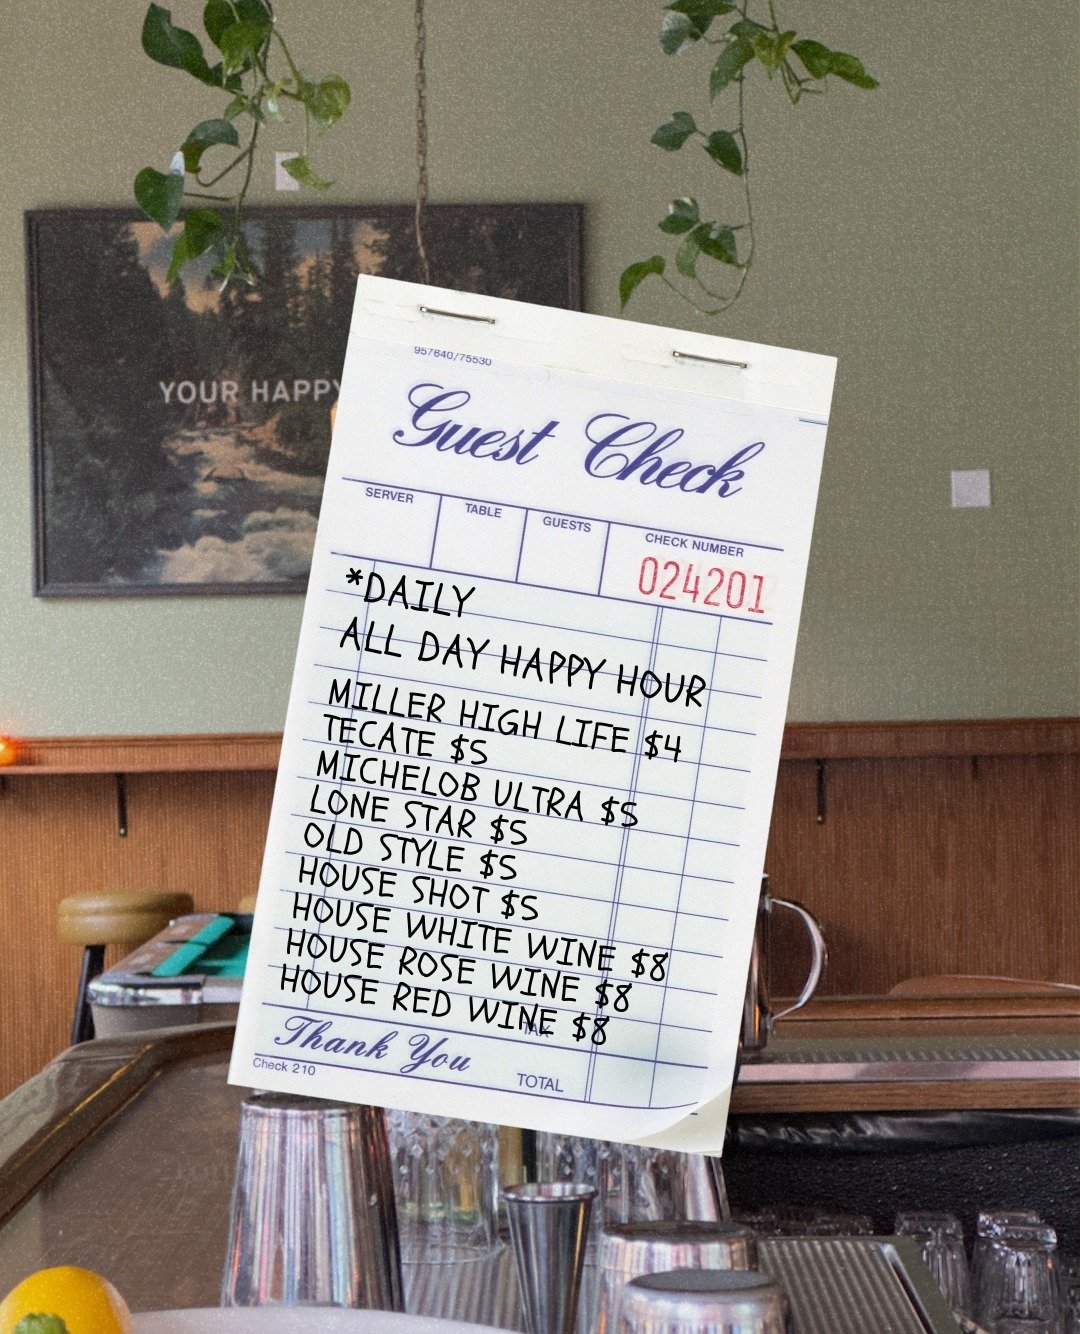 YOUR HAPPY
957640/75530
Guest Check
SERVER TABLE GUESTS CHECK NUMBER
024201
*DAILY
ALL DAY HAPPY HOUR
MILLER HIGH LIFE $4
TECATE $5
MICHELOB ULTRA $5
LONE STAR $5
OLD STYLE $5
HOUSE SHOT $5
HOUSE WHITE WINE $8
HOUSE ROSE WINE $8
HOUSE RED WINE $8
TAX
Thank You
Check 210
TOTAL